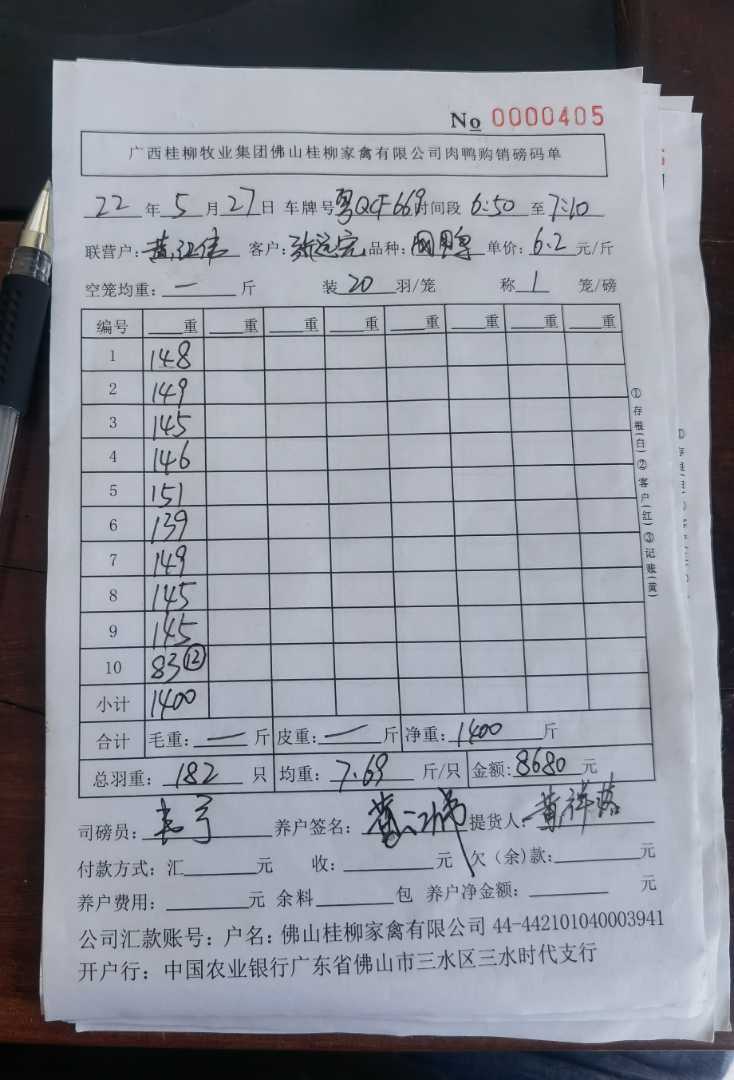 No 0000405
广西桂柳牧业集团佛山桂柳家禽有限公司肉鸭购销磅码单
22 年 5 月 27 日 车牌号 粤QCF669 时间段 6:50 至 7:10
联营户: 黄江伟 客户: 张远宏 品种: 单价: 6.2 元/斤
空笼均重: 一 斤 装 20 羽/笼 称 1 笼/磅
编号 重 重 重 重 重 重 重 重
1 148
2 149
3 145
4 146
5 151
6 139
7 149
8 145
9 145
10 83 ⑫
小计 1400
合计 毛重: 一 斤 皮重: 一 斤 净重: 1400 斤
总羽重: 182 只 均重: 7.69 斤/只 金额: 8680 元
司磅员: 养户签名: 提货人: 黄祥
付款方式: 汇 元 收: 元 欠(余)款: 元
养户费用: 元 余料 包 养户净金额: 元
公司汇款账号: 户名: 佛山桂柳家禽有限公司 44-442101040003941
开户行: 中国农业银行广东省佛山市三水区三水时代支行
①存根(白)②客户(红)③记账(黄)